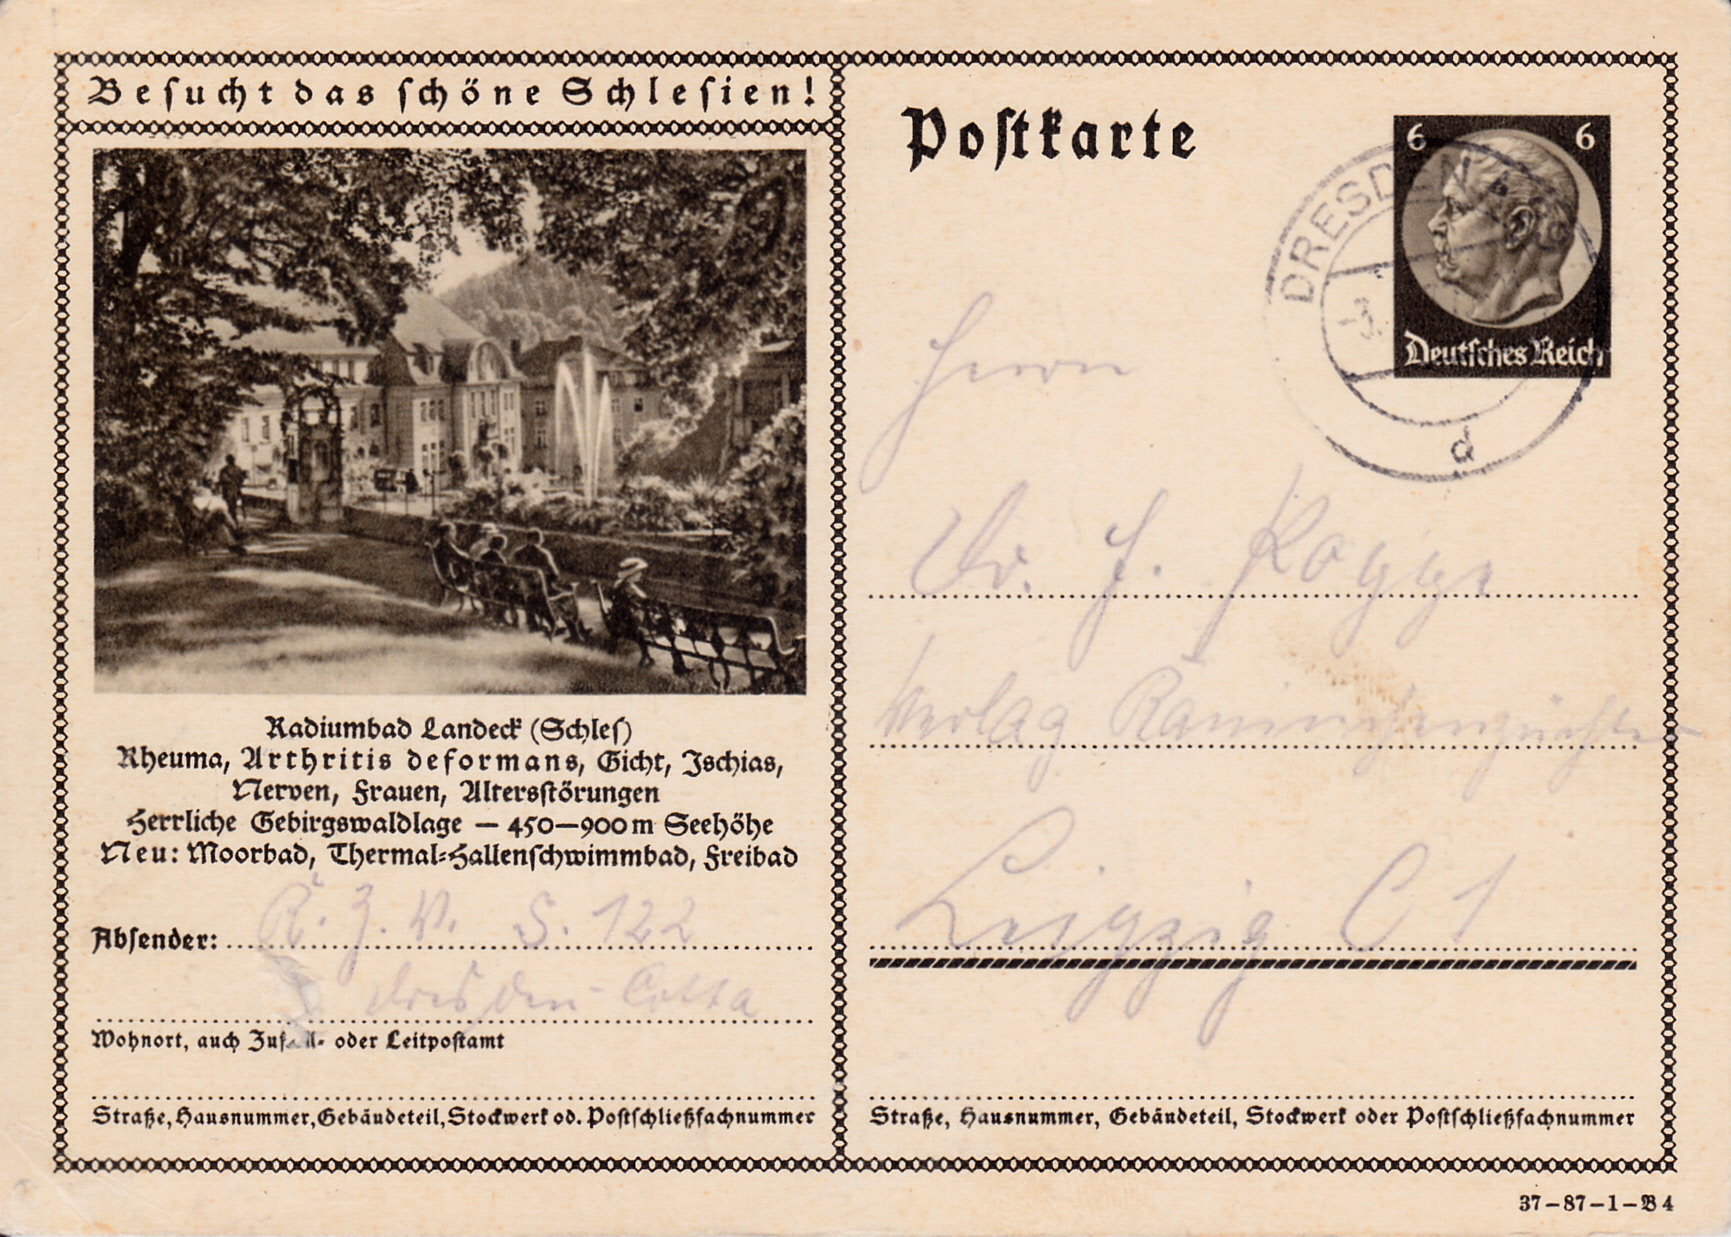 Besucht das schöne Schlesien!
Radiumbad Landeck (Schles)
Rheuma, Arthritis deformans, Gicht, Ischias,
Nerven, Frauen, Altersstörungen
Herrliche Gebirgswaldlage — 450—900 m Seehöhe
Neu: Moorbad, Thermal-Hallenschwimmbad, Freibad
Absender: K. Z. V. S. 122
Dresden-Cotta
Wohnort, auch Zustell- oder Leitpostamt
Straße, Hausnummer, Gebäudeteil, Stockwerk od. Postschließfachnummer
Postkarte
6 6
Deutsches Reich
DRESDEN
d
Herrn
Dr. J. Kogge
Verlag Kaninchenzüchter
Leipzig C 1
Straße, Hausnummer, Gebäudeteil, Stockwerk oder Postschließfachnummer
37-87-1-B4